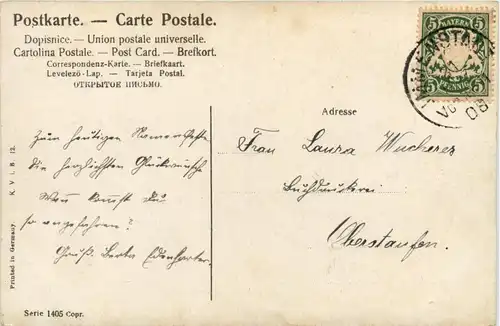 Postkarte. — Carte Postale.
Dopisnice. — Union postale universelle.
Cartolina Postale. — Post Card. — Brefkort.
Correspondenz-Karte. — Briefkaart.
Levelező-Lap. — Tarjeta Postal.
ОТКРЫТОЕ ПИСЬМО.
5 BAYERN 5
5 PFENNIG 5
IMMENSTADT
08
Adresse
Zum heutigen Namensfeste
die herzlichsten Glückwünsche
Wann kommst du
so angefahren?
Gruß. Berta
Frau Laura Wucherer
Buchdruckerei
Oberstaufen.
K. V i. B. 12.
Printed in Germany
Serie 1405 Copr.